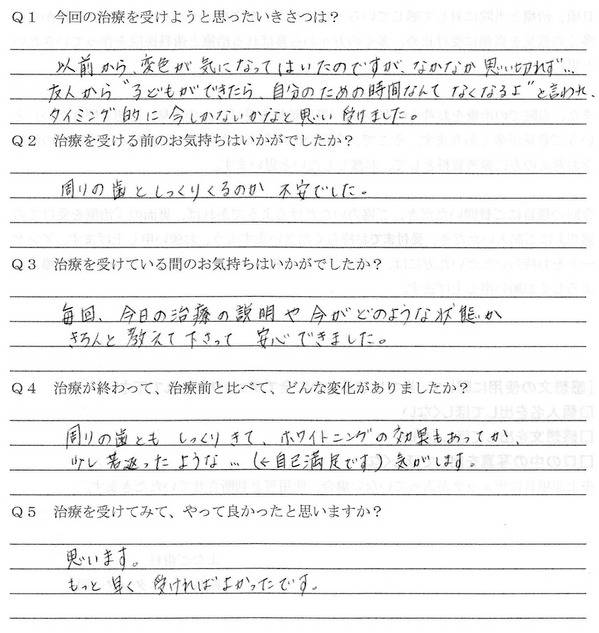 Q1 今回の治療を受けようと思ったいきさつは？
以前から、変色が気になってはいたのですが、なかなか思い切れず…
友人から“子どもができたら、自分のための時間なんてなくなるよ”と言われ、
タイミング的に今しかないかなと思い受けました。
Q2 治療を受ける前のお気持ちはいかがでしたか？
周りの歯としっくりくるのか不安でした。
Q3 治療を受けている間のお気持ちはいかがでしたか？
毎回、今日の治療の説明や今がどのような状態か
きちんと教えて下さって安心できました。
Q4 治療が終わって、治療前と比べて、どんな変化がありましたか？
周りの歯ともしっくりきて、ホワイトニングの効果もあってか
少し若返ったような…（←自己満足です）気がします。
Q5 治療を受けてみて、やって良かったと思いますか？
思います。
もっと早く受ければよかったです。